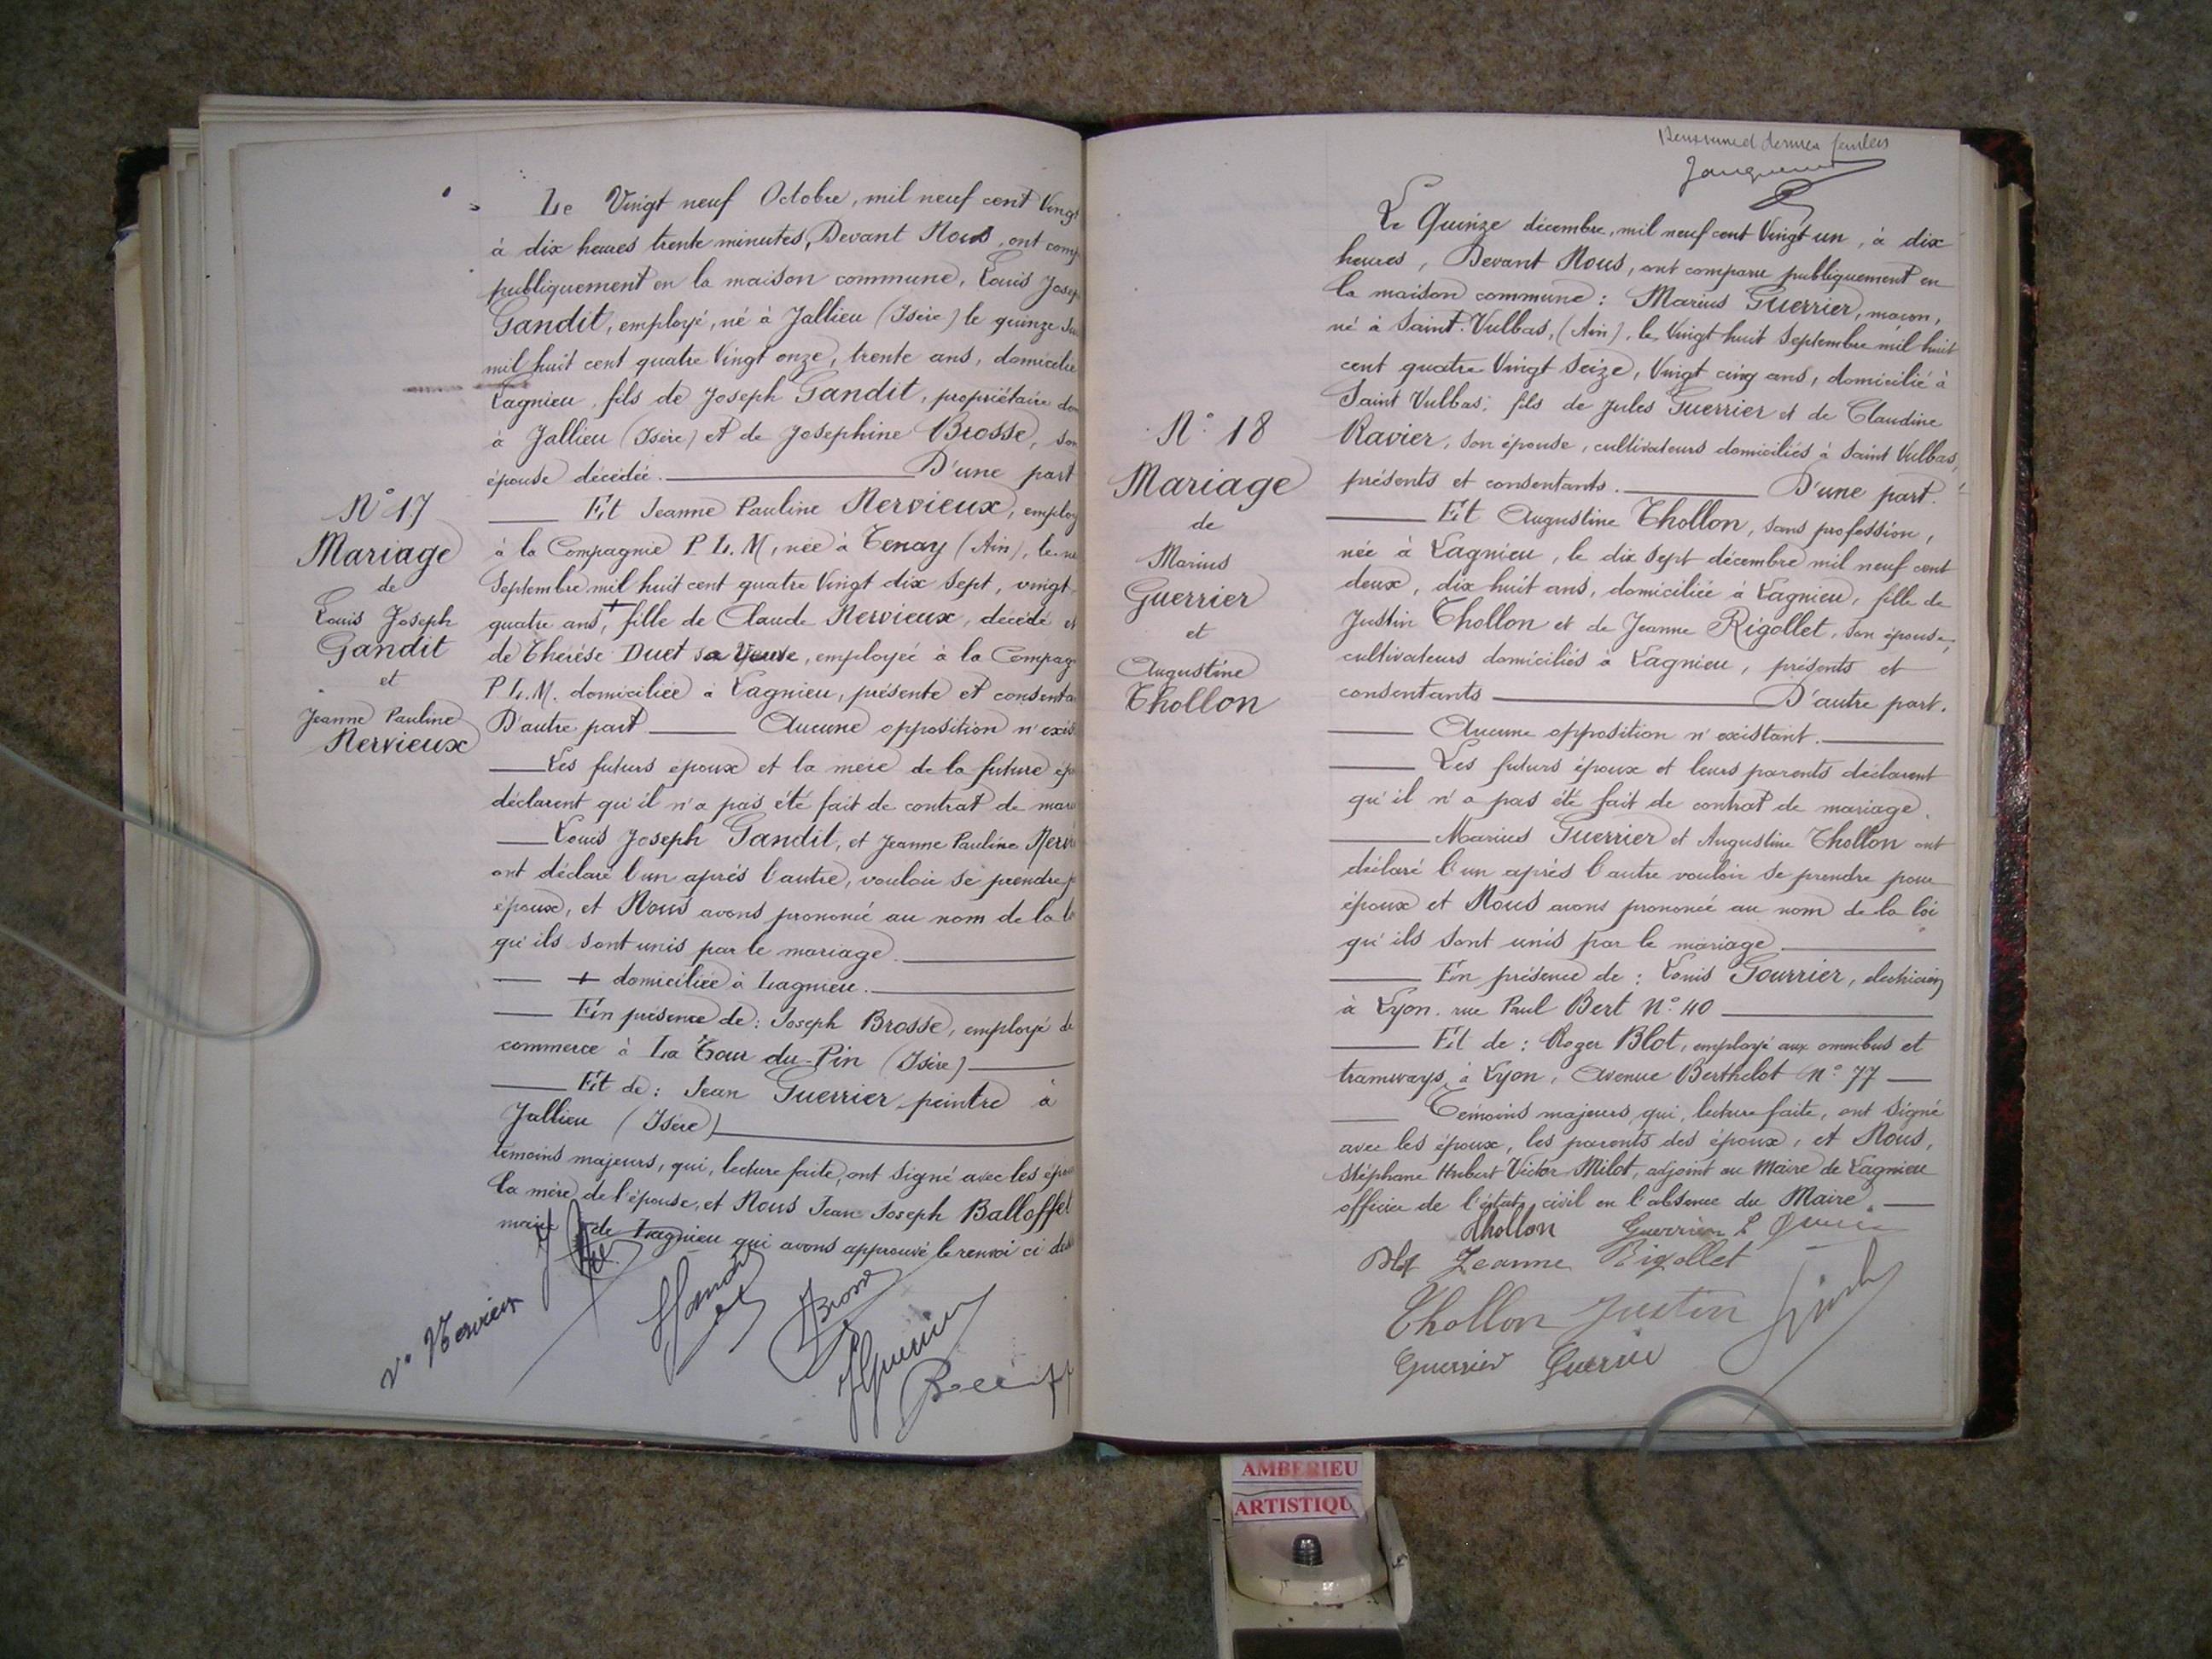 N° 17
Mariage
de
Louis Joseph
Gandit
et
Jeanne Pauline
Nervieux
Le Vingt neuf Octobre, mil neuf cent Vingt
à dix heures trente minutes, Devant Nous, ont comp
publiquement en la maison commune, Louis Josep
Gandit, employé, né à Jallieu (Isère) le quinze
mil huit cent quatre Vingt onze, trente ans, domicilié
Lagnieu, fils de Joseph Gandit, propriétaire dom
à Jallieu (Isère) et de Josephine Brosse, son
épouse décédée. D'une part
Et Jeanne Pauline Nervieux, employ
à la Compagnie P. L. M, née à Tenay (Ain), le
Septembre mil huit cent quatre Vingt dix sept, vingt
quatre ans, + fille de Claude Nervieux, décédé et
de Thérèse Duet sa Veuve, employée à la Compag
P. L. M. domiciliée à Lagnieu, présente et consenta
D'autre part Aucune opposition n'exis
Les futurs époux et la mère de la future ép
déclarent qu'il n'a pas été fait de contrat de mar
Louis Joseph Gandit, et Jeanne Pauline Nervi
ont déclaré l'un après l'autre, vouloir se prendre p
époux, et Nous avons prononcé au nom de la l
qu'ils sont unis par le mariage.
+ domiciliée à Lagnieu.
En présence de : Joseph Brosse, employé de
commerce à La Tour du-Pin (Isère)
Et de : Jean Guerrier peintre à
Jallieu (Isère)
témoins majeurs, qui, lecture faite, ont signé avec les épou
la mère de l'épouse, et Nous Jean Joseph Balloffet
maire de Lagnieu qui avons approuvé le renvoi ci des
Vve Nervieux
Gandit
JBrosse
JGuerrier
Jacquemet
N° 18
Mariage
de
Marius
Guerrier
et
Augustine
Thollon
Le Quinze décembre, mil neuf cent Vingt un, à dix
heures, Devant Nous, ont comparu publiquement en
la maison commune : Marius Guerrier, maçon,
né à Saint-Vulbas, (Ain), le Vingt huit Septembre mil huit
cent quatre Vingt Seize, Vingt cinq ans, domicilié à
Saint Vulbas, fils de Jules Guerrier et de Claudine
Ravier, son épouse, cultivateurs domiciliés à Saint Vulbas,
présents et consentants. D'une part.
Et Augustine Thollon, sans profession,
née à Lagnieu, le dix Sept décembre mil neuf cent
deux, dix huit ans, domiciliée à Lagnieu, fille de
Justin Thollon et de Jeanne Rigollet, son épouse,
cultivateurs domiciliés à Lagnieu, présents et
consentants D'autre part.
Aucune opposition n'existant.
Les futurs époux et leurs parents déclarent
qu'il n'a pas été fait de contrat de mariage.
Marius Guerrier et Augustine Thollon ont
déclaré l'un après l'autre vouloir se prendre pour
époux et Nous avons prononcé au nom de la loi
qu'ils sont unis par le mariage
En présence de : Louis Gourrier, électricien
à Lyon. rue Paul Bert N° 40
Et de : Roger Blot, employé aux omnibus et
tramways, à Lyon, Avenue Berthelot N° 77
Témoins majeurs, qui, lecture faite, ont signé
avec les époux, les parents des époux, et Nous,
Stéphane Hubert Victor Milot, adjoint au Maire de Lagnieu
officier de l'état civil en l'absence du Maire.
Thollon Guerrier L
Blot Jeanne Rigollet
Thollon Justin
Guerrier Guerrier
AMBERIEU
ARTISTIQU